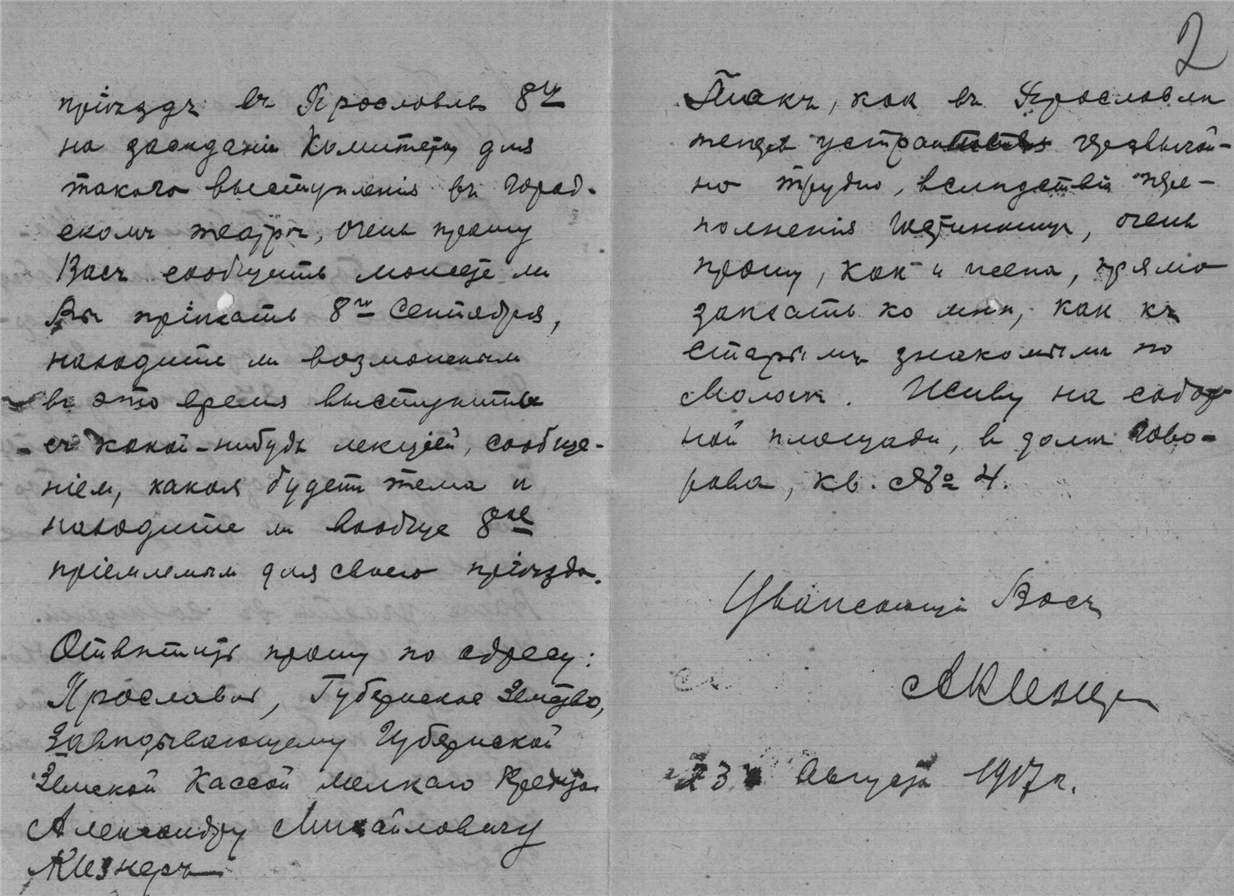 2
пріѣздъ въ Ярославль 8го
на заседаніи Комитета для
такого выступленія въ город-
скомъ театрѣ, очень прошу
Васъ сообщить можете ли
Вы пріѣхать 8го Сентября,
находите ли возможным
въ это время выступить
съ какой-нибудь лекціей, сообще-
ніем, какая будет тема и
находите ли вообще 8ое
пріемлемым для своего пріѣзда.
Отвѣтить прошу по адресу:
Ярославль, Губернское Земство,
Завѣдывающему Губернской
Земской Кассой мелкаго Кредита
Александру Михайловичу
Такъ, как въ Ярославле
теперь чрезвычай-
но трудно, вследствіе пере-
полненія гостиницъ, очень
прошу, как и всегда, прямо
заехать ко мнѣ, как къ
старым знакомым по
Мологѣ. Живу на собор
ной площади, в доме Гово-
рова, кв. № 4.
Уважающій Васъ
23 Августа 1917 г.